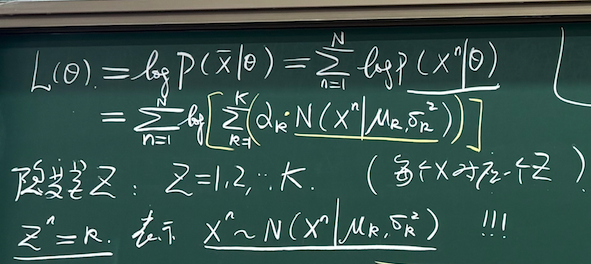 L(θ) = log P(x̄|θ) = ∑_{n=1}^{N} log p(xⁿ|θ)
= ∑_{n=1}^{N} log [∑_{k=1}^{K} (α_k · N(xⁿ|μ_k, σ_k²))]
隐变量 Z : Z=1,2,...K. (每个X对应一个Z)
Zⁿ=k. 表示 xⁿ ~ N(xⁿ|μ_k, σ_k²) !!!